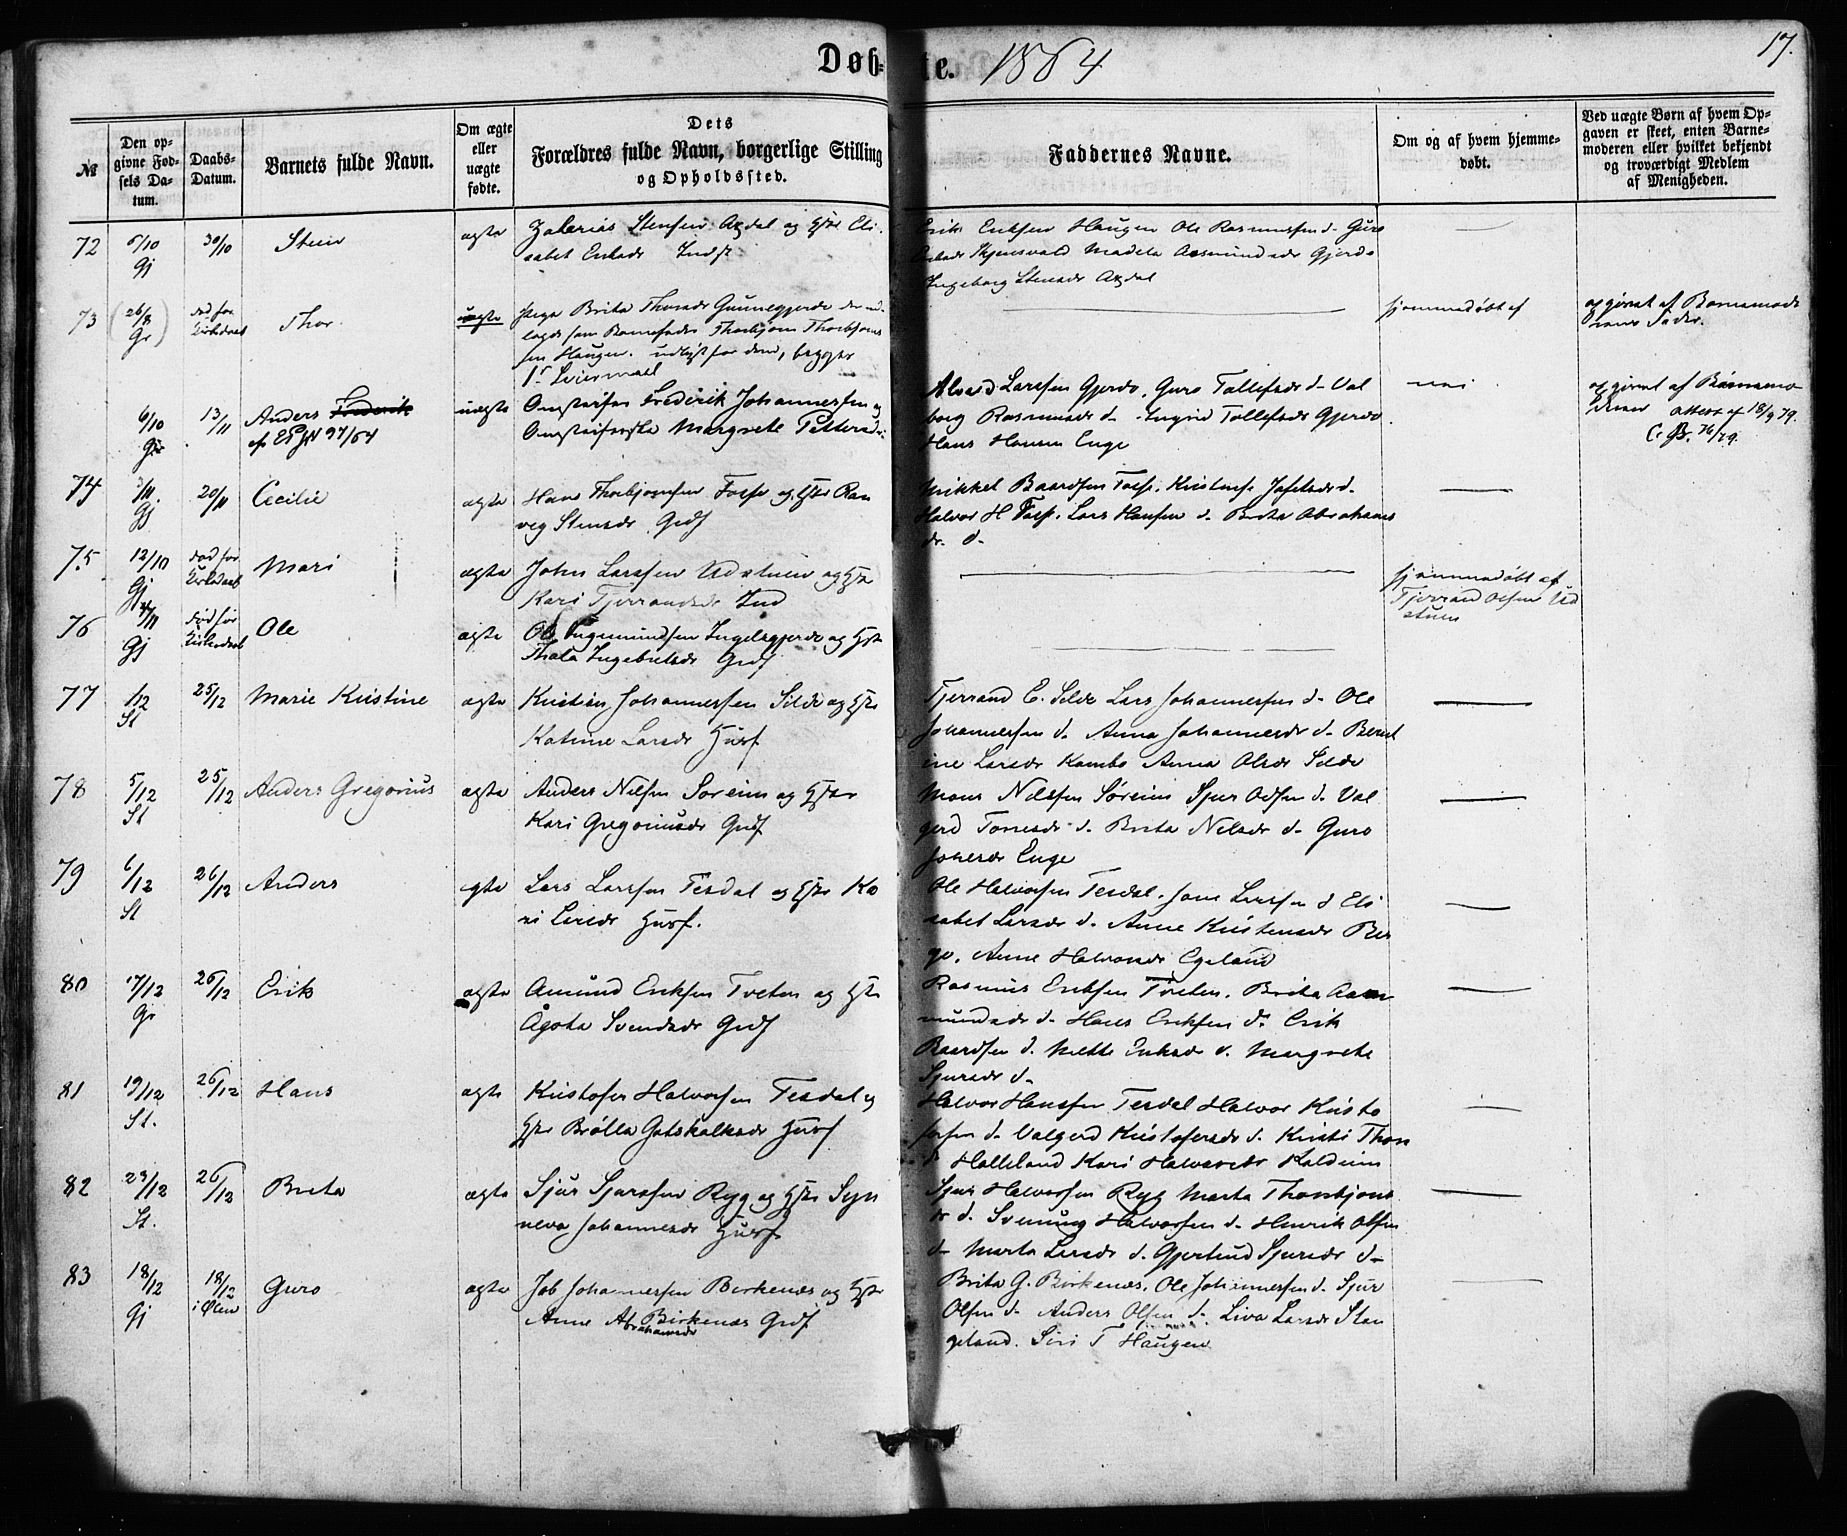 Døbte. 1864
17.
№
Den opgivne Fødsels Datum.
Daabs-Datum.
Barnets fulde Navn.
Om ægte eller uægte fødte.
Dets Forældres fulde Navn, borgerlige Stilling og Opholdssted.
Faddernes Navne.
Om og af hvem hjemmedøbt.
Ved uægte Børn af hvem Opgaven er skeet, enten Barnemoderen eller hvilket bekjendt og troværdigt Medlem af Menigheden.
72 30/10 Sten ægte
Erik Eriksen Haugen Ole Rasmussen d- Guro
Ingeborg Stensdr
73 (26/8 Gr) død før Kirkedaab Thor uægte Pige Brita Thorsdr
som Barnefader Thorbjørn Thorbjørns
sen Haugen.
1ste Leiermaal
hjemmedøbt af
opgivet af Barnemode
rens Fader.
6/10 13/11 Anders Frederik uægte Omstreifer Frederik Johannessen og
Omstreiferske Margrete Pettersdr
Larssen Gjerde, Guro Tollefsdr d- Val
borg Rasmusdr d- Ingrid Tollefsdr Gjerde
Hans Hansen Enge
nei
opgivet af Barnemo
deren Attest af 18/9 79.
74 3/11 Gj 20/11 Cecilie ægte Hans Thorbjørnsen Fosse og Hstr Ran
veg Stensdr Grdf
Mikkel Baardsen Fosse.
Halvor H Fosse. Lars Hansen d- Brita Abrahams
dr. d-
75 12/10 Gj død før Kirkedaab Mari ægte John Larssen Udstuen og Hstr
Kari Tjerandsdr Ind
hjemmedøbt af
Tjerrand Olsen Ud
stuen
76 Gj død før Kirkedaab Ole ægte Ole Ingemundsen og Hstr
Ingebretsdr Grdf
77 1/12 St 25/12 Marie Kristine ægte Kristian Johannessen Silde og Hstr
Katrine Larsdr Husf
Tjerrand E. Silde Lars Johannessen d- Ole
Johannessen d- Anna Johannesdr d- Bernt
ine Larsdr Kambe Anna Olsdr Silde
78 5/12 St 25/12 Anders Gregorius ægte Anders Nilsen Søreim og Hstr
Kari Gregoriusdr Grdf
Mons Nilsen Søreim Sjur Olsen d- Val
gerd Torresdr d- Brita Nilsdr d- Guro
Enge
79 6/12 St 26/12 Anders ægte Lars Larssen Tesdal og Hstr Ka
ri Larsdr Husf.
Ole Halvorsen Tesdal. Larssen d Eli
sabet Larsdr d- Anne Kristensdr Ber
ge, Anne Halvorsdr Egeland
80 17/12 Gr 26/12 Erik ægte Amund Eriksen Tveten og Hstr
Ågota Svendsdr Grdf
Rasmus Eriksen Tveten. Brita Aa
mundsdr d- Hans Eriksen d- Erik
Baardsen d. Mette Eriksdr d. Margrete
Sjursdr d-
81 19/12 St. 26/12 Hans ægte Kristofer Halvorsen Tesdal og
Hstr Brølla Gotskalksdr Husf
Halvor Hansen Tesdal Halvor Kristo
fersen d- Valgerd Kristofersdr d- Kristi Thors
d Halleland Kari Halvorsdr Kaldeim
82 23/12 St. 26/12 Brita ægte Sjur Sjursen Ryg og Hstr Syn
neva Johannesdr Husf
Sjur Halvorsen Ryg Marta Thorbjørns
dr d. Svenung Halvorsen d- Henrik Olsen
d- Marta Larsdr d. Gjertrud Sjursdr d-
83 18/12 Gj 18/12 i Ølen Guro ægte Job Johannessen Birkenæs og Hstr
Anne Abrahamsdr Birkenæs Grdf
Brita G. Birkenæs. Ole Johannessen d- Sjur
Olsen d- Anders Olsen d. Liva Larsdr Stan
geland. Siri T Haugen